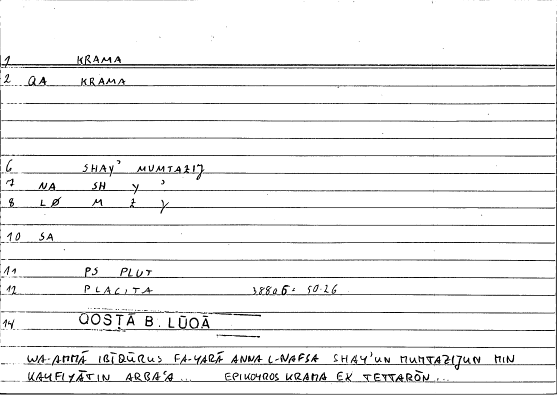 1 KRAMA
2 QA KRAMA
6 SHAY' MUMTAZIJ
7 NA SH Y '
8 LØ M Z J
10 SA
11 PS PLUT
12 PLACITA 388 05: 50-26
14 QOSṬĀ B. LŪQĀ
WA-AMMĀ IBĪQŪRUS FA-YARĀ ANNA L-NAFSA SHAY'UN MUMTAZIJUN MIN
KAYFIYĀTIN ARBA'A... EPIKOYROS KRAMA EK TETTARŌN...